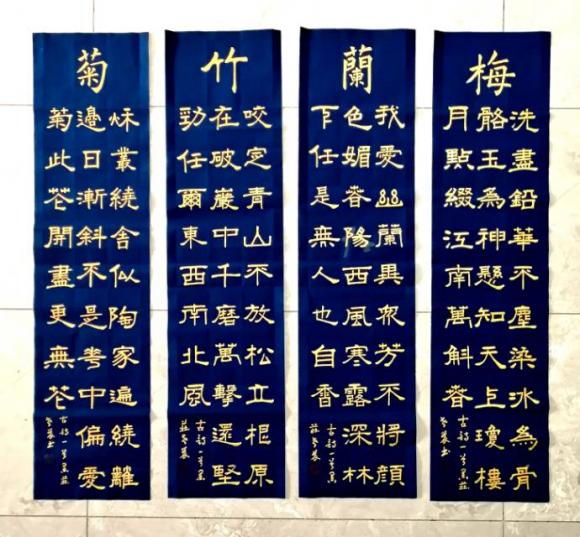 梅
洗盡鉛華不塵染冰為骨
骼玉為神懸知天上瓊樓
月點綴江南萬斛春
古詩一首
蘭
我愛幽蘭異眾芳不將顏
色媚春陽西風寒露深林
下任是無人也自香
古詩一首
竹
咬定青山不放松立根原
在破巖中千磨萬擊還堅
勁任爾東西南北風
古詩一首
菊
秋叢繞舍似陶家遍繞籬
邊日漸斜不是花中偏愛
菊此花開盡更無花
古詩一首